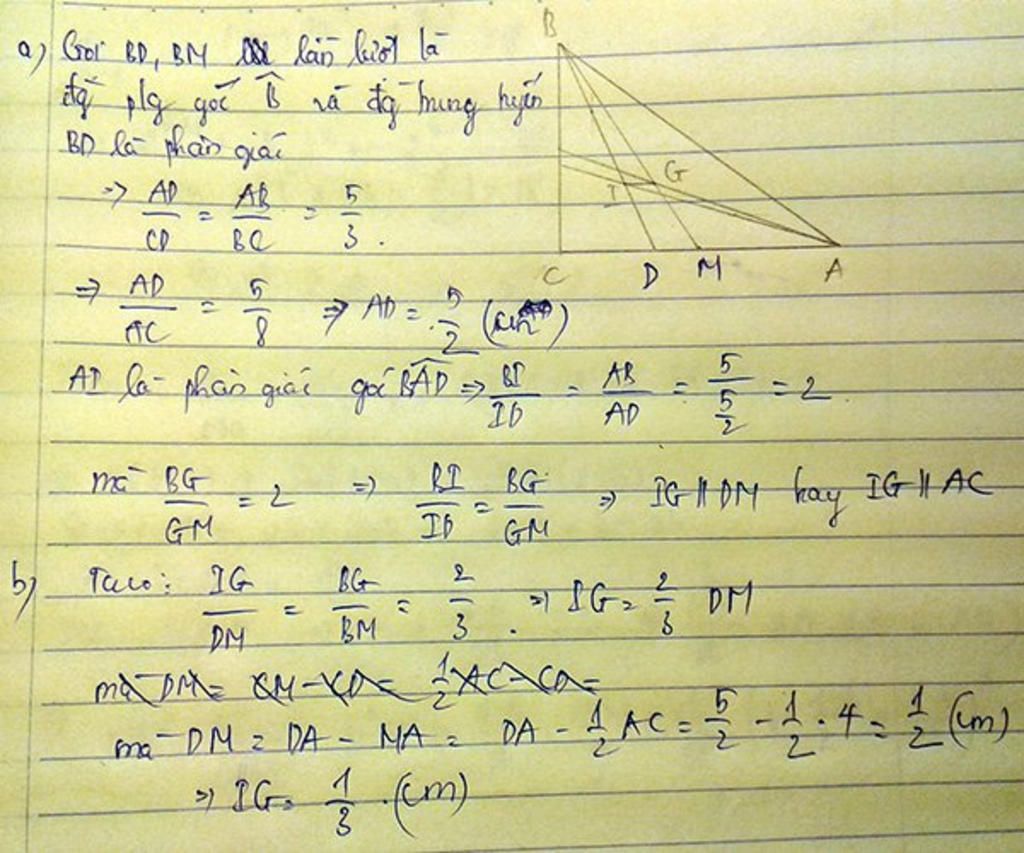 a) Gọi BD, BM lần lượt là
đg plg góc B̂ và đg trung tuyến
BD là phân giác
=> AD/CD = AB/BC = 5/3.
=> AD/AC = 5/8 => AD = 5/2 (cm)
AI là phân giác góc BAD => BI/ID = AB/AD = 5/(5/2) = 2
mà BG/GM = 2 => BI/ID = BG/GM => IG // DM hay IG // AC
b) Ta có: IG/DM = BG/BM = 2/3. => IG = 2/3 DM
mà DM = CM - CD = 1/2 AC - CD =
mà DM = DA - MA = DA - 1/2 AC = 5/2 - 1/2 . 4 = 1/2 (cm)
=> IG = 1/3 . (cm)
B
I G
C D M A